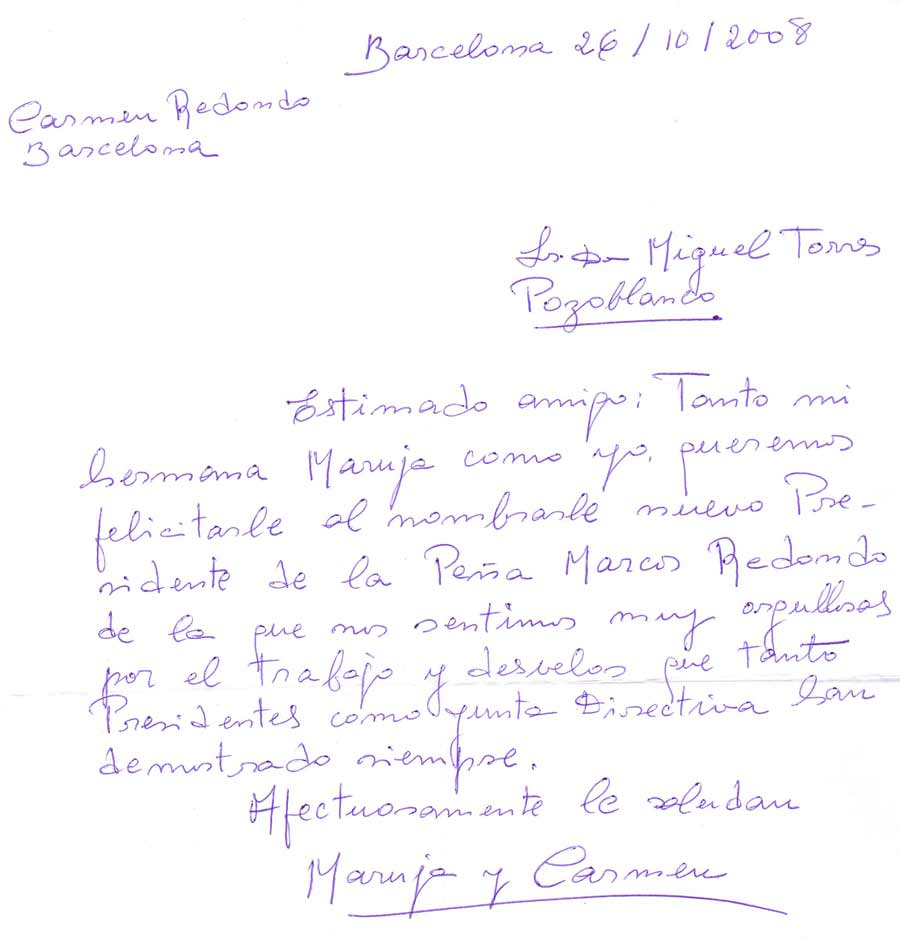 Barcelona 26/10/2008
Carmen Redondo
Barcelona
Sr. D. Miguel Torres
Pozoblanco
Estimado amigo: Tanto mi
hermana Maruja como yo, queremos
felicitarle al nombrarle nuevo Pre-
sidente de la Peña Marcos Redondo
de la que nos sentimos muy orgullosas
por el trabajo y desvelos que tanto
Presidentes como Junta Directiva han
demostrado siempre.
Afectuosamente le saludan
Maruja y Carmen